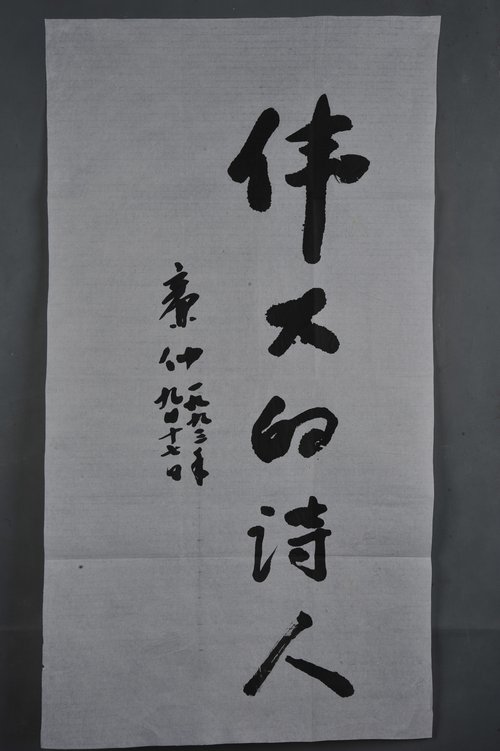 伟大的诗人
仲
一九九三年
九月十七日